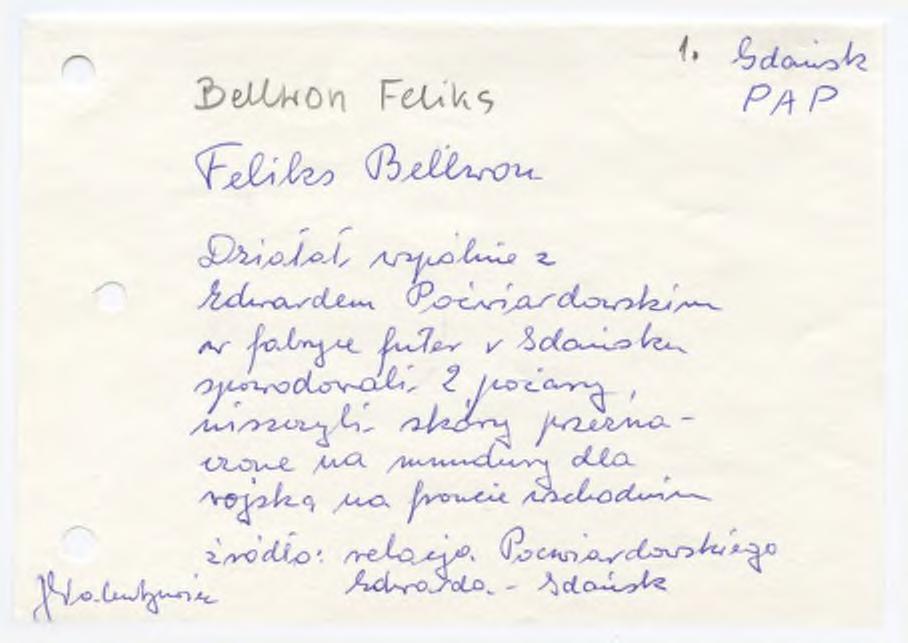 1. Gdańsk
PAP
Bellwon Feliks
Feliks Bellwon
Działał wspólnie z
Edwardem Poćwiardowskim
w fabryce futer w Gdańsku
spowodowali 2 pożary,
niszczyli skóry przezna-
czone na mundury dla
wojska na froncie wschodnim
źródło: relacja Poćwiardowskiego
Edwarda - Gdańsk